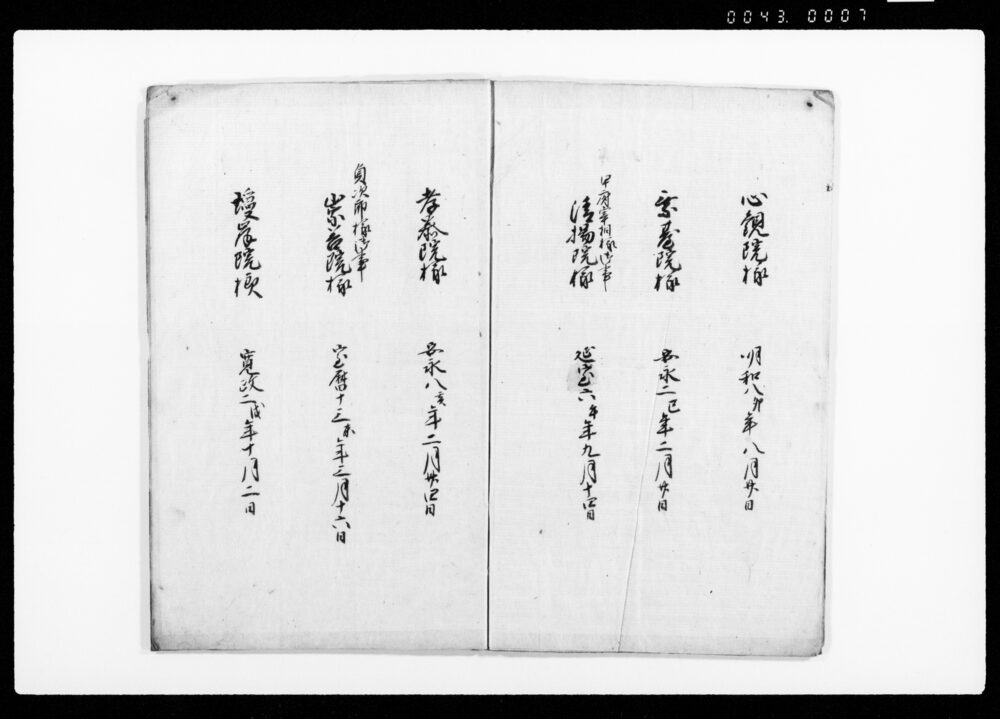 0043.0007
心観院様　明和八卯年八月廿日
乗臺院様　安永二巳年二月廿日
甲府宰相様御事
清揚院様　延宝六午年九月十四日
孝恭院様　安永八亥年二月廿四日
貞次郎様御事
崇善院様　宝暦十三未年三月十六日
瓊岸院様　寛政二戌年十月二日